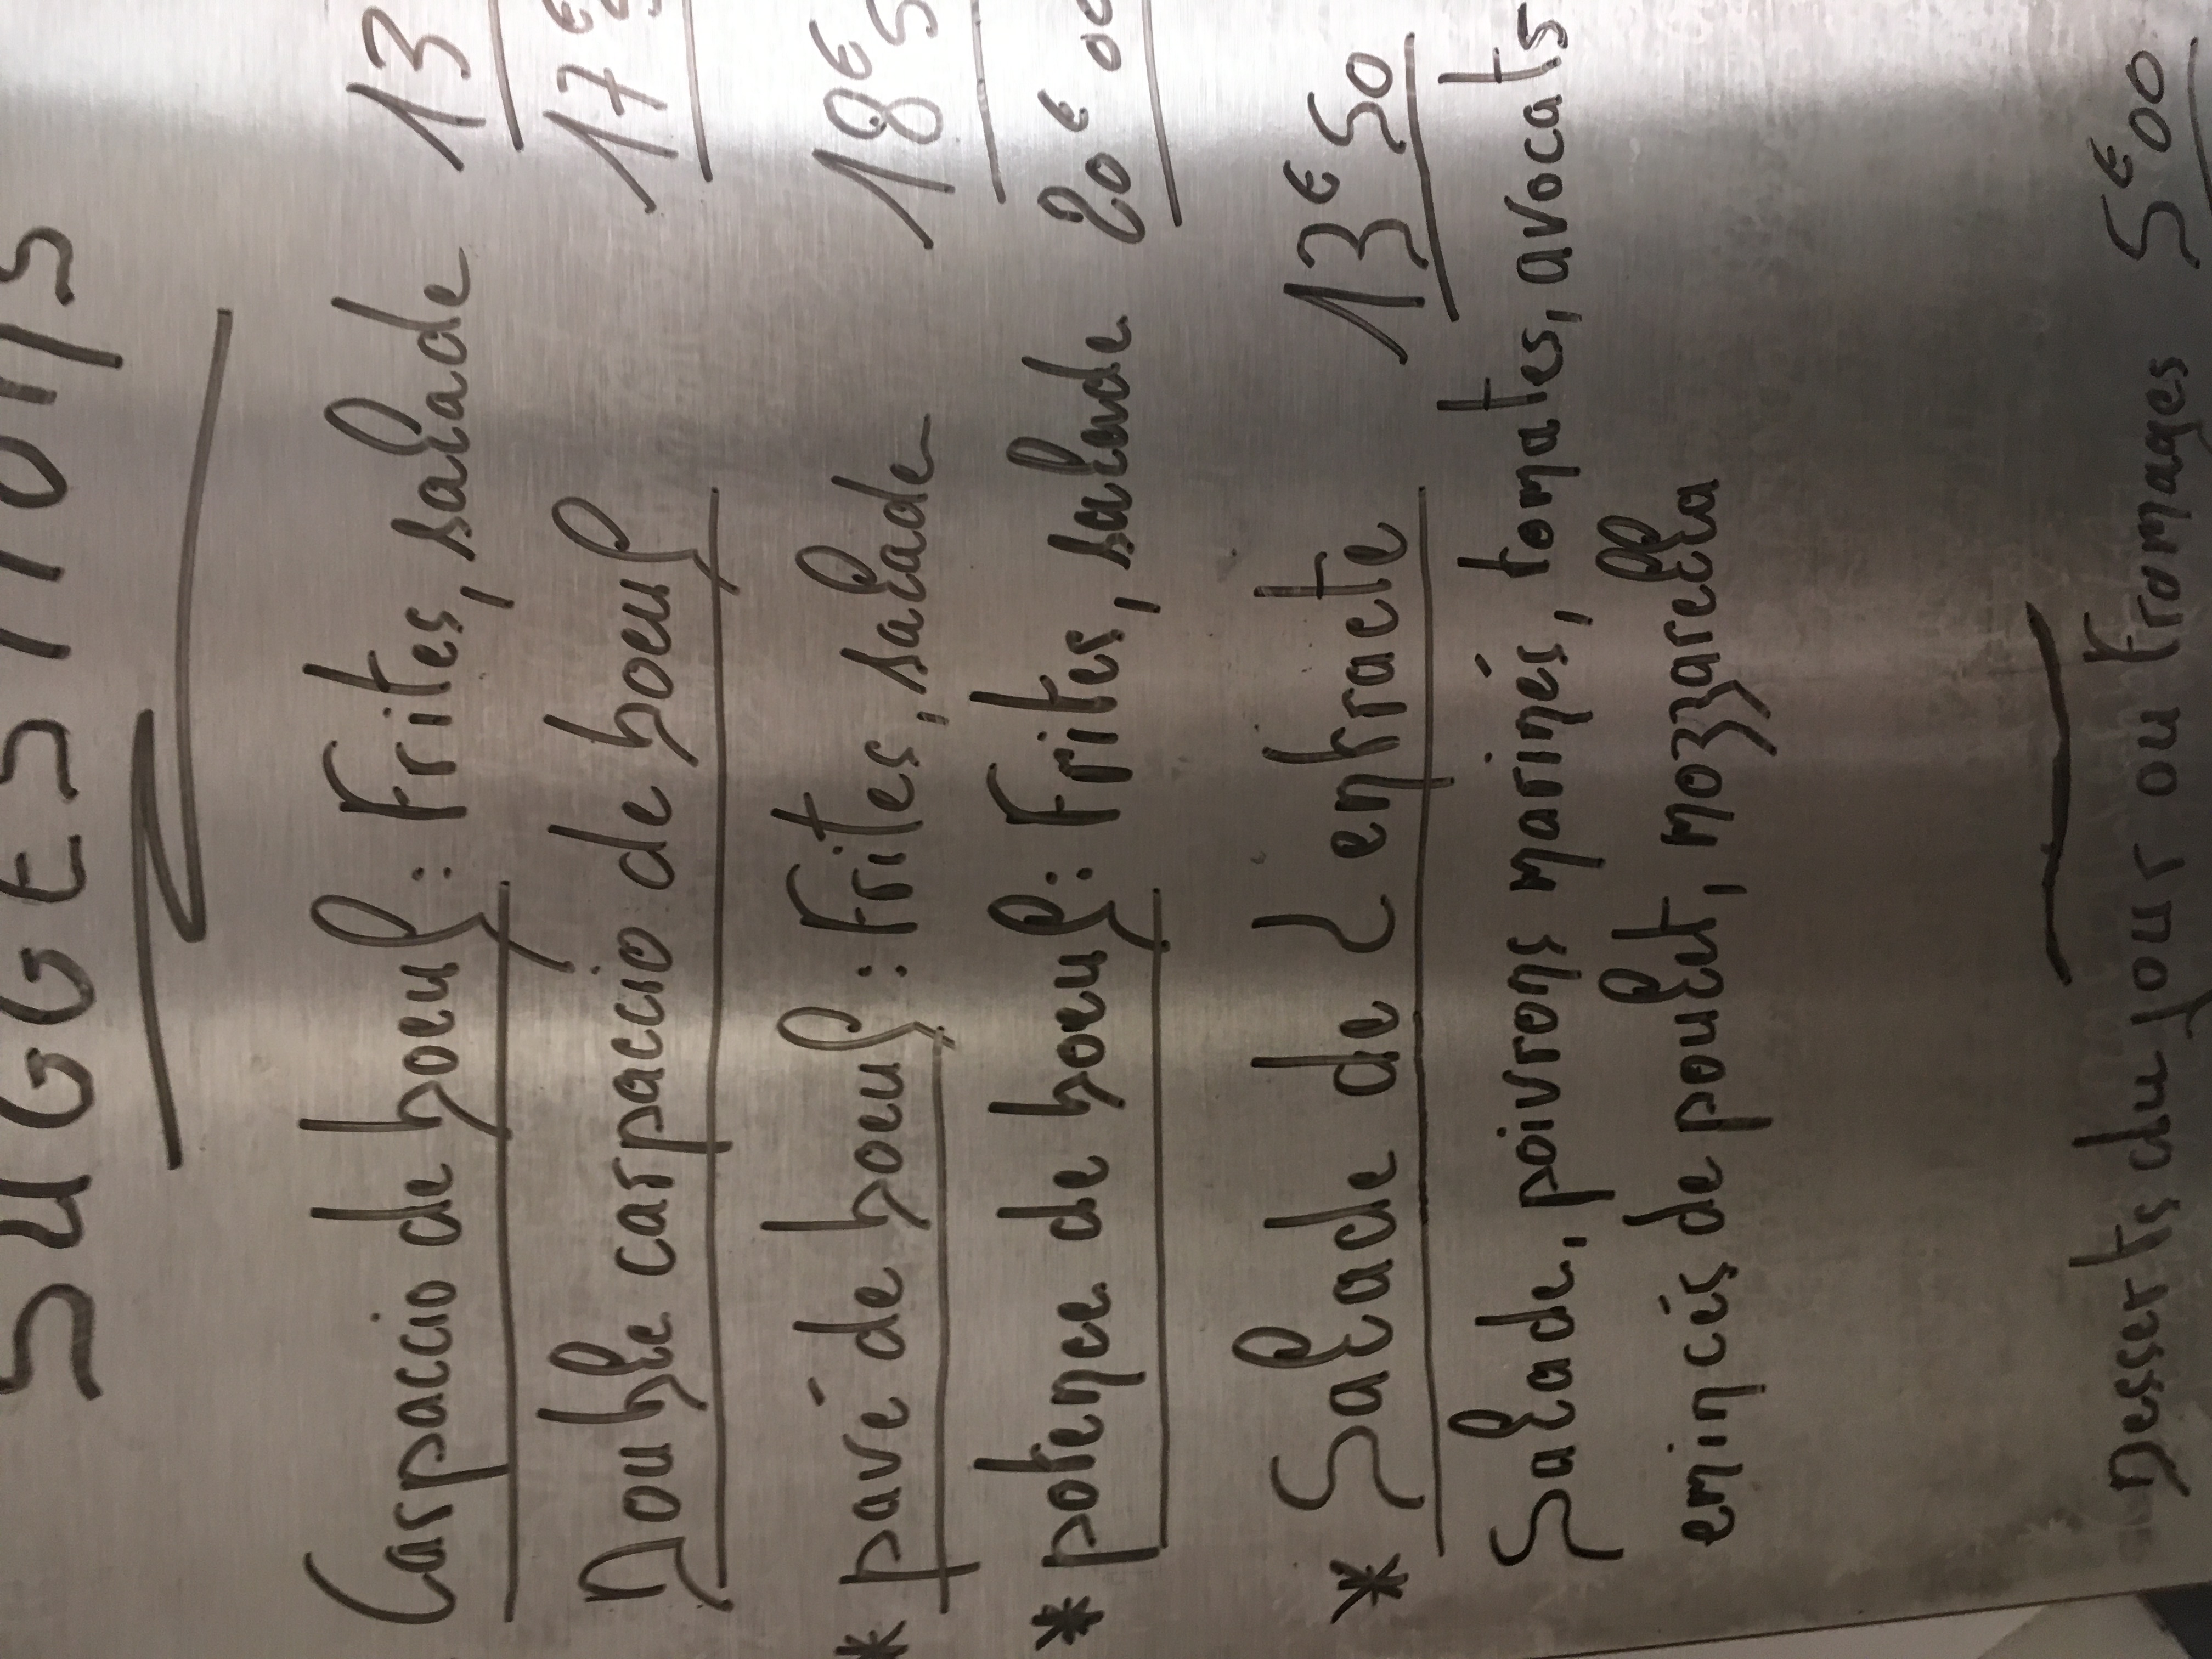 SUGGESTIONS
Carpaccio de boeuf : Frites, salade 13
Double carpaccio de boeuf 17€
* pavé de boeuf : Frites, salade 18€5
* potence de boeuf : Frites, salade 20€00
* Salade de l'entracte 13€50
Salade, poivrons marinés, tomates, avocats
emincés de poulet, mozzarella
Desserts du jour ou Fromages 5€00